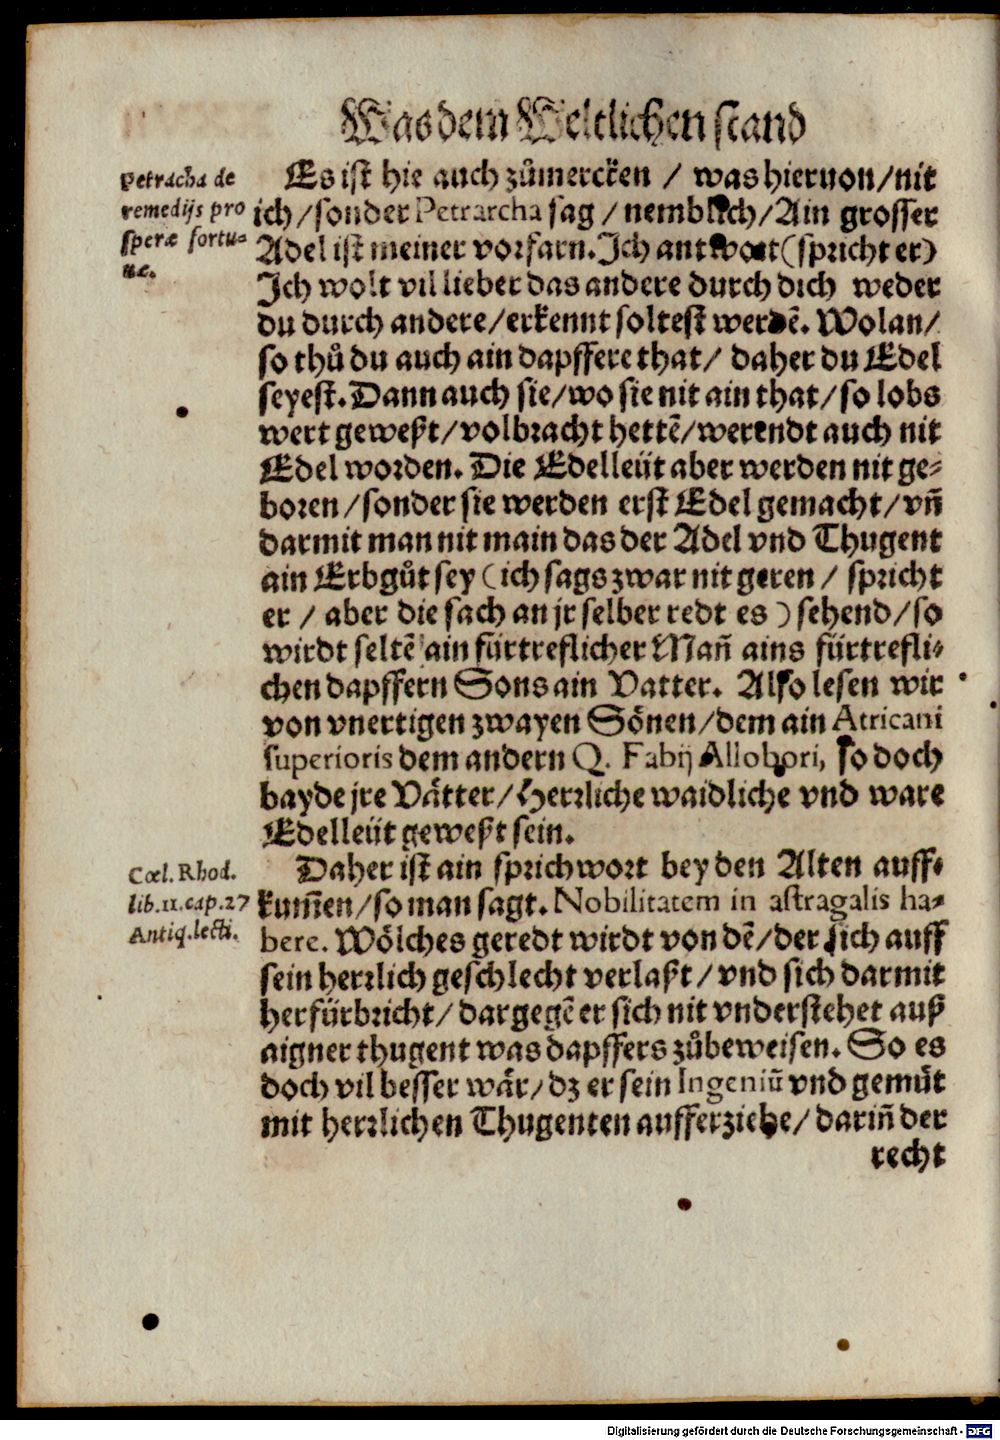 Was dem Weltlichen stand
Petracha de
remedijs pro
speræ fortu-
næ.
Es ist hie auch zůmercken / was hieruon/nit
ich/sonder Petrarcha sag / nemblich/Ain grosser
Adel ist meiner vorfarn. Ich antwort (spricht er)
Ich wolt vil lieber das andere durch dich weder
du durch andere/erkennt soltest werdẽ. Wolan/
so thů du auch ain dapffere that/ daher du Edel
seyest. Dann auch sie/wo sie nit ain that/so lobs
wert geweßt/volbracht hettẽ/werendt auch nit
Edel worden. Die Edelleüt aber werden nit ge-
boren/sonder sie werden erst Edel gemacht/vñ
darmit man nit main das der Adel vnd Thugent
ain Erbgůt sey (ich sags zwar nit geren / spricht
er / aber die sach an jr selber redt es) sehend/so
wirdt seltẽ ain fürtreflicher Mañ ains fürtrefli-
chen dapffern Sons ain Vatter. Also lesen wir
von vnertigen zwayen Sönen/dem ain Africani
superioris dem andern Q. Fabij Allobori, so doch
bayde jre Vätter/Herrliche waidliche vnd ware
Edelleüt geweßt sein.
Cœl. Rhod.
lib. 11. cap. 27
Antiq. lecti.
Daher ist ain sprichwort bey den Alten auff-
kum̃en/so man sagt. Nobilitatem in astragalis ha-
bere. Wölches geredt wirdt von dẽ/der sich auff
sein herrlich geschlecht verlaßt/vnd sich darmit
herfürbricht/dargegẽ er sich nit vnderstehet auß
aigner thugent was dapffers zůbeweisen. So es
doch vil besser wär/dz er sein Ingeniũ vnd gemüt
mit herrlichen Thugenten aufferziehe/dariñ der
recht
Digitalisierung gefördert durch die Deutsche Forschungsgemeinschaft - DFG